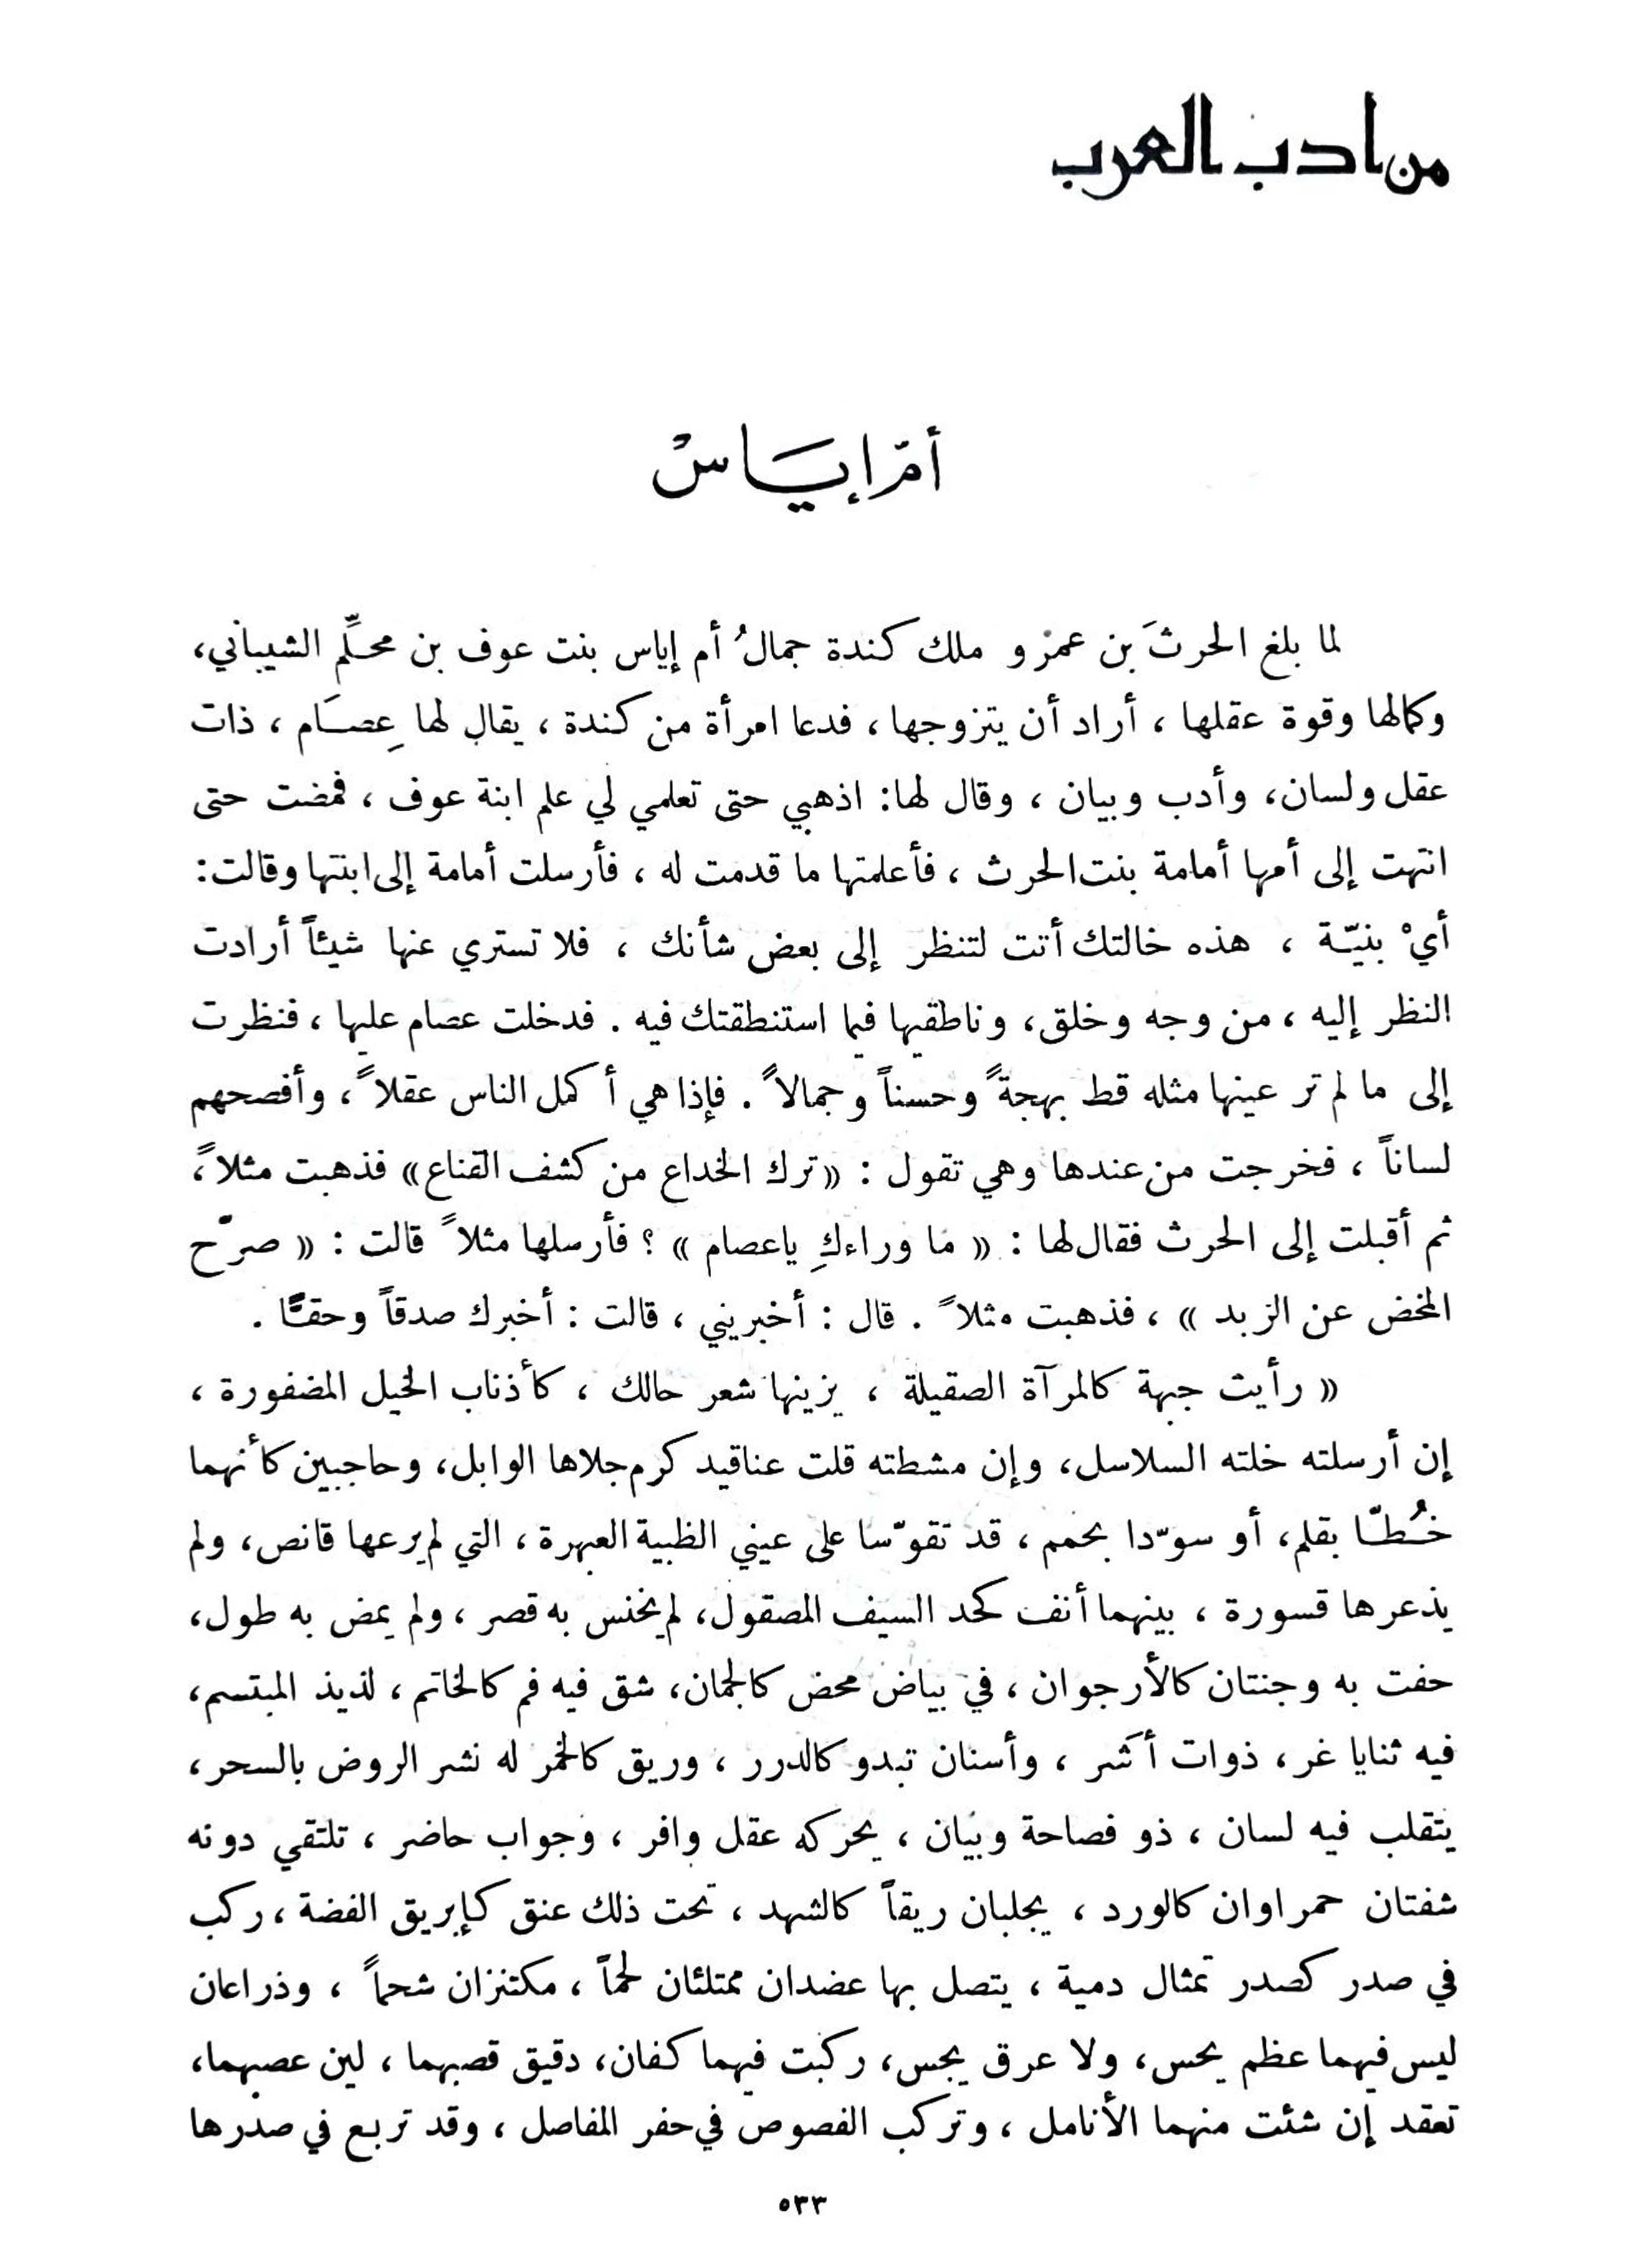 من ادب العرب
أمّ إيَاسْ
لما بلغ الحرثَ بن عمرو ملك كندة جمالُ أم إياس بنت عوف بن محلِّم الشيباني،
وكمالها وقوة عقلها ، أراد أن يتزوجها ، فدعا امرأة من كندة ، يقال لها عِصَام ، ذات
عقل ولسان، وأدب وبيان ، وقال لها: اذهبي حتى تعلمي لي علم ابنة عوف ، فمضت حتى
انتهت إلى أمها أمامة بنت الحرث ، فأعلمتها ما قدمت له ، فأرسلت أمامة إلى ابنتها وقالت:
أيْ بنيّة ، هذه خالتك أتت لتنظر إلى بعض شأنك ، فلا تستري عنها شيئاً أرادت
النظر إليه ، من وجه وخلق، وناطقيها فيما استنطقتك فيه . فدخلت عصام عليها ، فنظرت
إلى ما لم تر عينها مثله قط بهجةً وحسناً وجمالاً . فإذا هي أكمل الناس عقلاً ، وأفصحهم
لساناً ، فخرجت من عندها وهي تقول : «ترك الخداع من كشف القناع» فذهبت مثلاً،
ثم أقبلت إلى الحرث فقال لها : « ما وراءكِ ياعصام » ؟ فأرسلها مثلاً قالت : « صرّح
المخض عن الزبد » ، فذهبت مثلاً . قال : أخبريني ، قالت : أخبرك صدقاً وحقّاً .
« رأيت جبهة كالمرآة الصقيلة ، يزينها شعر حالك ، كأذناب الخيل المضفورة ،
إن أرسلته خلته السلاسل، وإن مشطته قلت عناقيد كرم جلاها الوابل، وحاجبين كأنهما
خُطّا بقلم، أو سوّدا بحمم ، قد تقوّسا على عيني الظبية العبهرة ، التي لم يرعها قانص، ولم
يذعرها قسورة ، بينهما أنف كحد السيف المصقول، لم يخنس به قصر ، ولم يمض به طول،
حفت به وجنتان كالأرجوان ، في بياض محض كالجمان، شق فيه فم كالخاتم ، لذيذ المبتسم،
فيه ثنايا غر ، ذوات أشَر ، وأسنان تبدو كالدرر ، وريق كالخمر له نشر الروض بالسحر ،
يتقلب فيه لسان ، ذو فصاحة وبيان ، يحركه عقل وافر ، وجواب حاضر ، تلتقي دونه
شفتان حمراوان كالورد ، يجلبان ريقاً كالشهد ، تحت ذلك عنق كإبريق الفضة ، ركب
في صدر كصدر تمثال دمية ، يتصل بها عضدان ممتلئان لحماً ، مكتنزان شحماً ، وذراعان
ليس فيهما عظم يحس، ولا عرق يجس، ركبت فيهما كفان، دقيق قصبهما ، لين عصبهما،
تعقد إن شئت منهما الأنامل ، وتركب الفصوص في حفر المفاصل ، وقد تربع في صدرها
٥٣٣